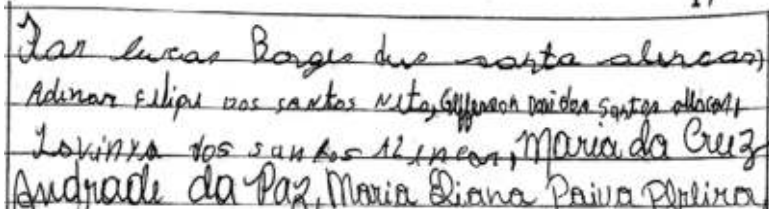 Ilan lucas Borges dus santa alencar,
Adenar Filipe dos santos Neto, Gefferson Davi dos Santos
Lavinya dos santos Alencar, Maria da Cruz
Andrade da Paz, Maria Diana Paiva Pereira,